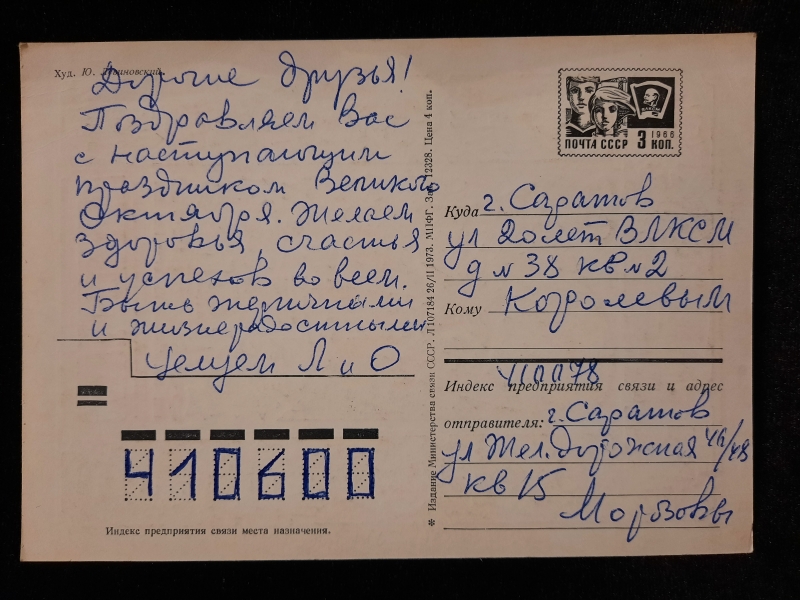 Худ. Ю.
Дорогие друзья!
Поздравляем Вас
с наступающим
праздником Великого
Октября. Желаем
здоровья, счастья
и успехов во всем.
Быть энергичными
и жизнерадостными
Целуем Л и О
410600
Индекс предприятия связи места назначения.
✻ Издание Министерства связи СССР. Л107184 26/II 1973. МПФГ. Зак. 12328. Цена 4 коп.
ВЛКСМ
1966
ПОЧТА СССР 3 КОП.
Куда г. Саратов
ул 20 лет ВЛКСМ
д № 38 кв № 2
Кому Королевым
410078
Индекс предприятия связи и адрес
отправителя: г. Саратов
ул Жел. Дорожная
кв 15